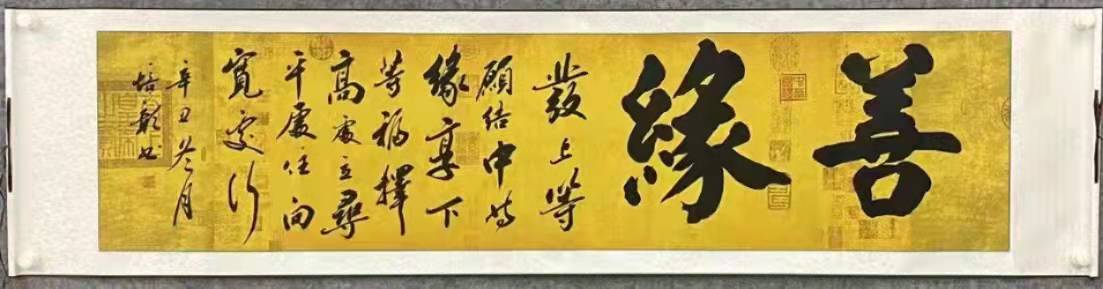 善緣
發上等
願結中等
緣享下
等福擇
高處立尋
平處住向
寬處行
辛丑冬月
培彰书